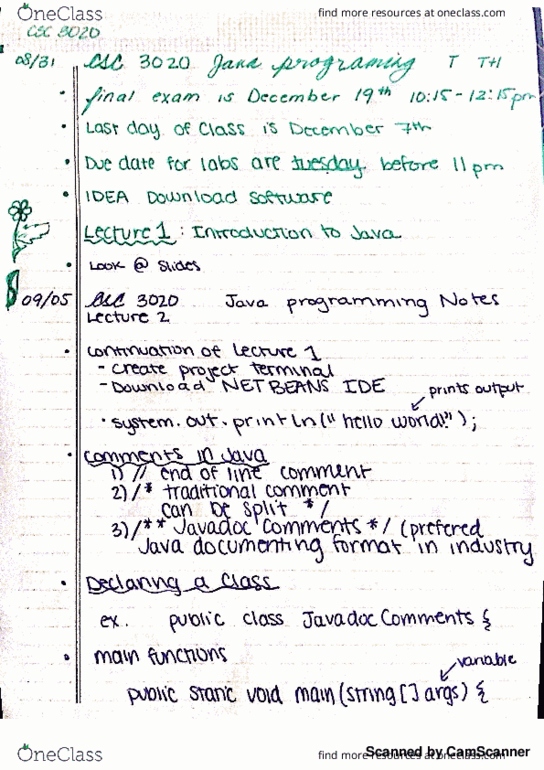 OneClass
find more resources at oneclass.com
CSC 3020
08/31 CSC 3020 Java programing T TH
• final exam is December 19th 10:15-12:15pm
• Last day of Class is December 7th
• Due date for labs are tuesday before 11pm
• IDEA Download software
Lecture 1: Introduction to Java
• Look @ Slides
09/05 CSC 3020 Java programming Notes
Lecture 2
• continuation of Lecture 1
- create project terminal
- Download NETBEANS IDE
prints output
• system.out.println("hello world!");
• comments in Java
1) // end of line comment
2) /* traditional comment
can be split */
3) /** Javadoc Comments */ (prefered
Java documenting format in industry
• Declaring a Class
ex. public class Javadoc Comments {
• main functions
variable
public static void main (string [] args) {
OneClass
find more resources at oneclass.com
Scanned by CamScanner